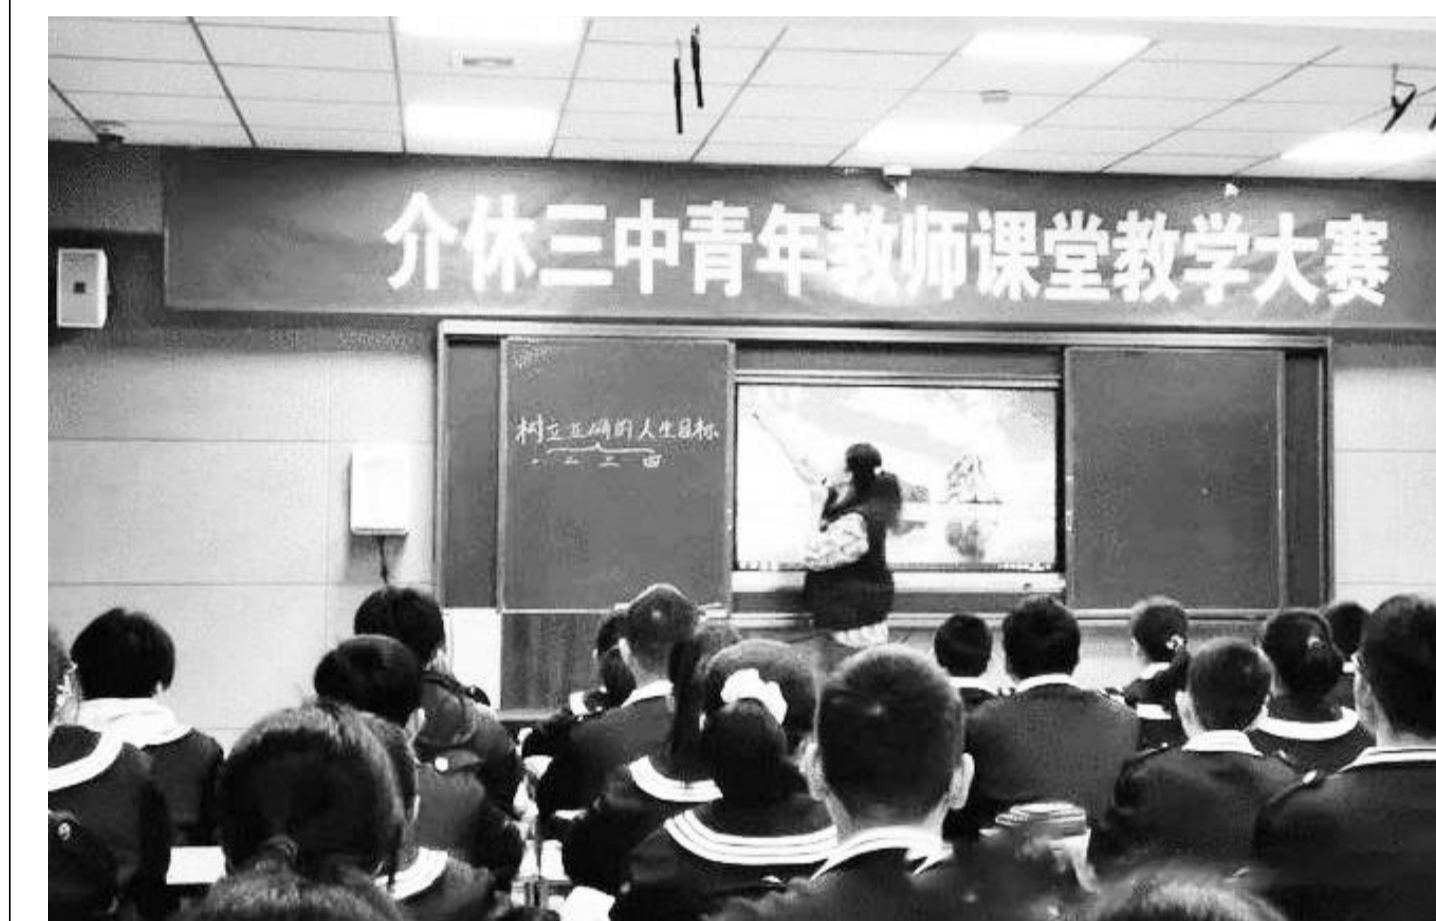 介休三中青年教师课堂教学大赛
树立正确的人生目标
一 二 三 四